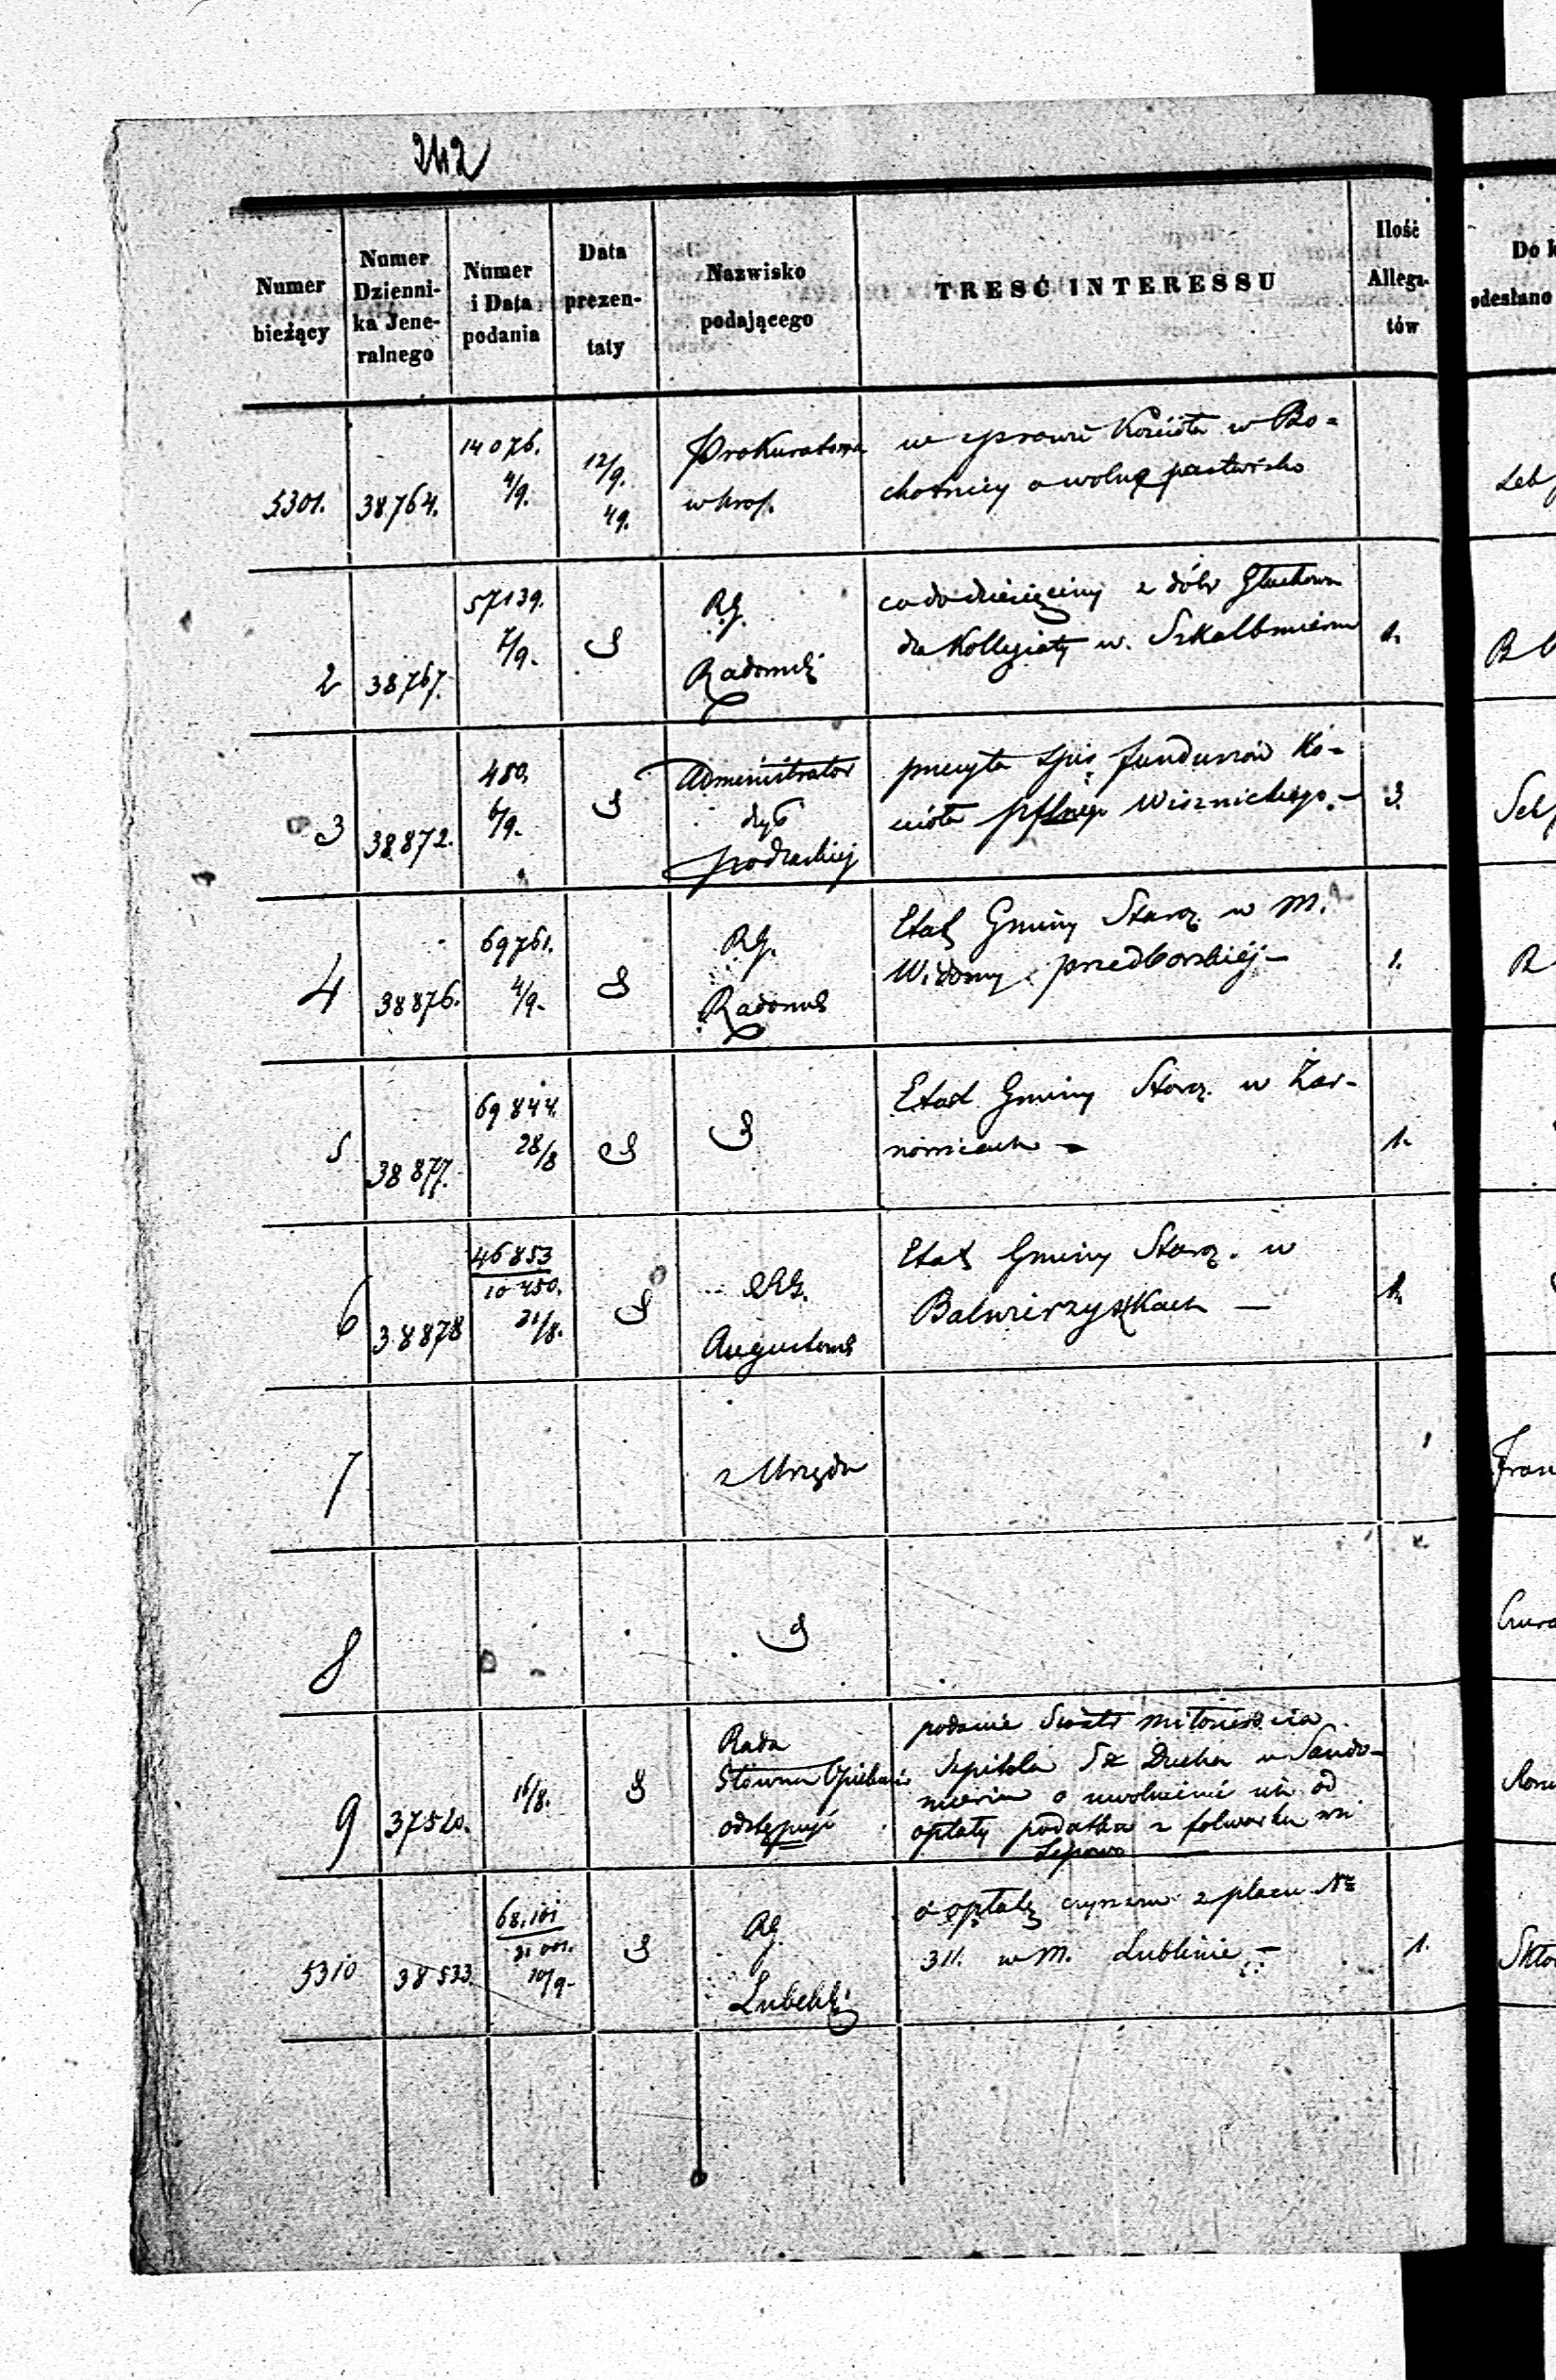 242
Numer bieżący
Numer Dzienni- ka Jene- ralnego
Numer i Data podania
Data prezen- taty
Nazwisko podającego
TRESĆ INTERESSU
Ilość Allega- tów
Do k
odesłano
5301. 38764. 14076. 4/9. 12/9. 49. Prokuratorya w sprawie Kościoła w Bo-
chotnicy o wolne pastwisko
2 38767. 57139. 7/9. RG. Radomski co do dziesięciny z dóbr Głuchowa
dla Kollegiaty w. Szkalbmierzu 1.
3 38872. 480. 6/9. Administrator dyec podlaskiej przesyła spis funduszów Ko-
ścioła Wisznickiego.- 3.
4 38876. 69761. 4/9. RG. Radoms Etat Gminy Staroz. w M.
przedborskiéj- 1.
5 38877. 69844. 28/8 Etat Gminy Staroz. w Żar-
nowcach - 1.
6 38878 46853 10450. 21/8. RG. Augustows Etat Gminy Staroz. w
Balwierzyszkach — 1.
7 z Urzędu
8
9 37520. 16/8. Rada Główna Opiekuńcza odstępuje podanie Sióstr miłosierdzia
Szpitala Sgo Ducha w Sando-
mierzu o uwolnienie ich od
opłaty podatku z folwarku wsi
5310 38533. 68,101 10/9. RG. Lubelski o opłatę czynszu z placu No
311. w M. Lublinie - 1.